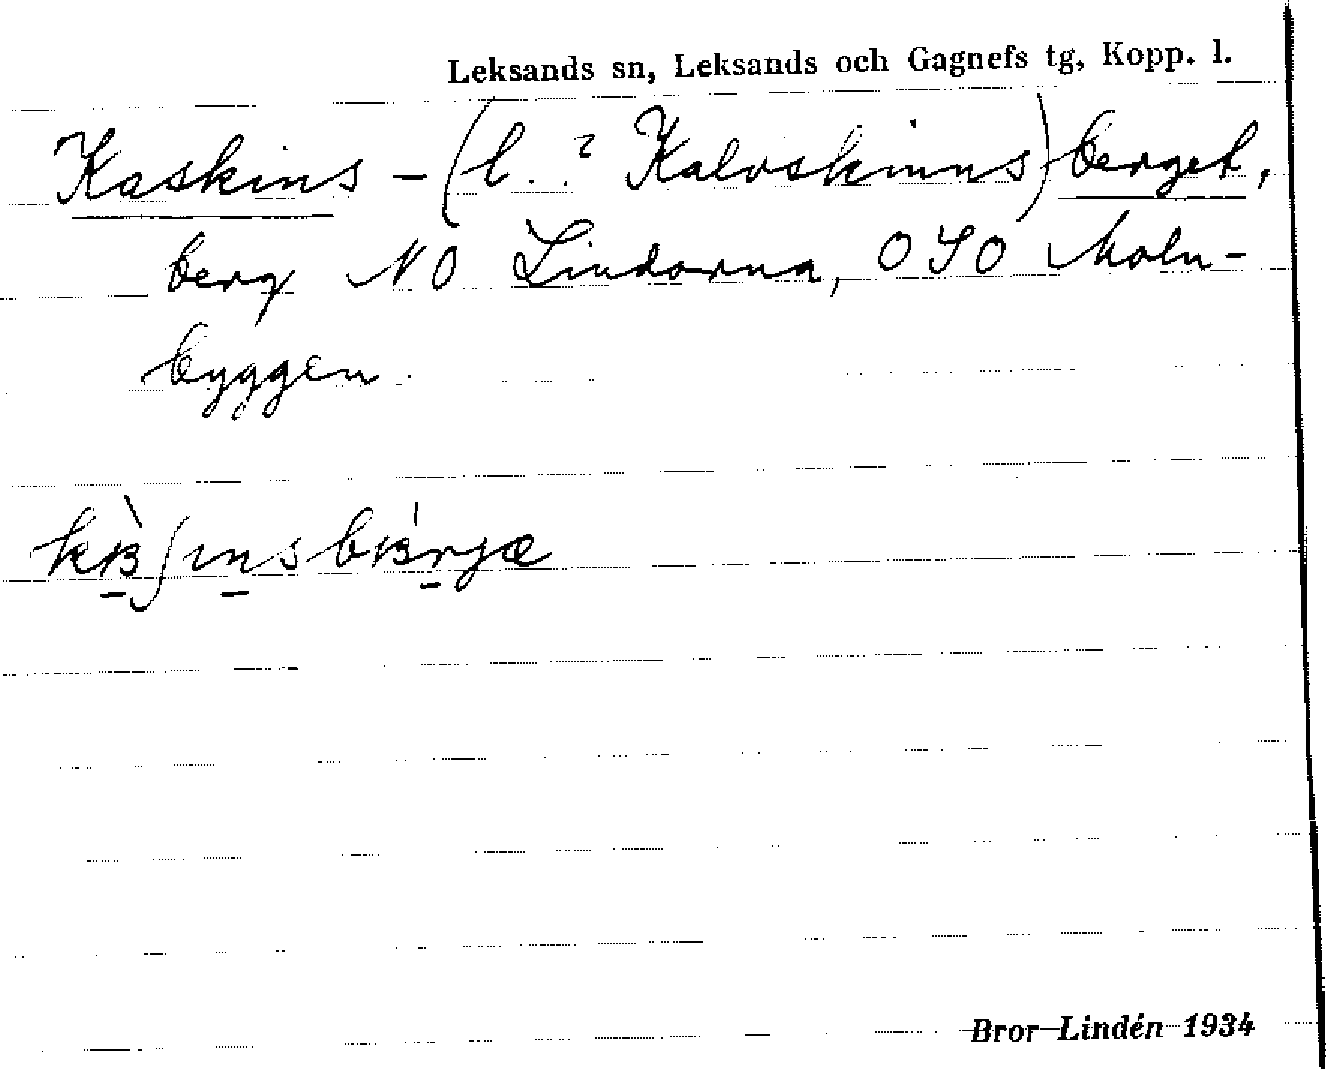 Leksands sn, Leksands och Gagnefs tg, Kopp. l.
Kaskins - (l. ? Kalvskinns) berget,
berg NO Lindorna, OSO Moln-
byggen.
Bror Lindén 1934